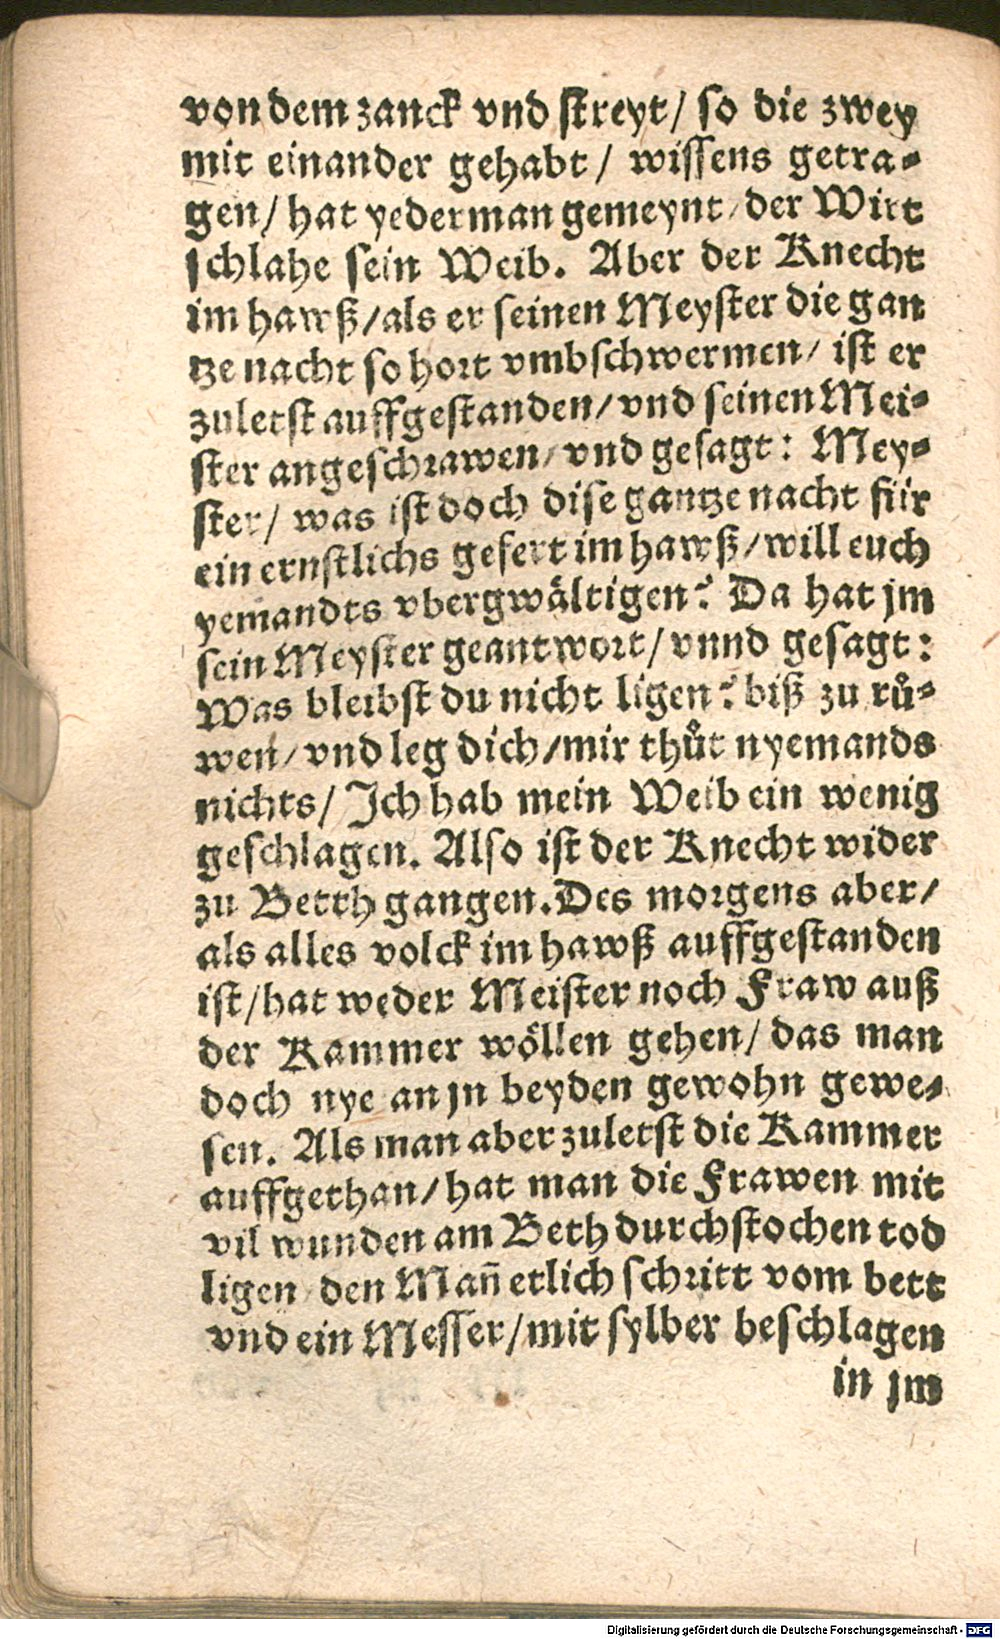 von dem zanck vnd streyt / so die zwey
mit einander gehabt / wissens getra-
gen / hat yederman gemeynt / der Wirt
schlahe sein Weib. Aber der Knecht
im hawß / als er seinen Meyster die gan
tze nacht so hort vmbschwermen / ist er
zuletst auffgestanden / vnd seinen Mei-
ster angeschrawen / vnd gesagt: Mey-
ster / was ist doch dise gantze nacht für
ein ernstlichs gefert im hawß / will euch
yemandts vbergwältigen? Da hat jm
sein Meyster geantwort / vnnd gesagt:
Was bleibst du nicht ligen? biß zu rů-
wen / vnd leg dich / mir thůt nyemands
nichts / Ich hab mein Weib ein wenig
geschlagen. Also ist der Knecht wider
zu Betth gangen. Des morgens aber /
als alles volck im hawß auffgestanden
ist / hat weder Meister noch Fraw auß
der Kammer wöllen gehen / das man
doch nye an jn beyden gewohn gewe-
sen. Als man aber zuletst die Kammer
auffgethan / hat man die Frawen mit
vil wunden am Beth durchstochen tod
ligen / den Mañ etlich schritt vom bett
vnd ein Messer / mit sylber beschlagen
in jm
Digitalisierung gefördert durch die Deutsche Forschungsgemeinschaft - DFG